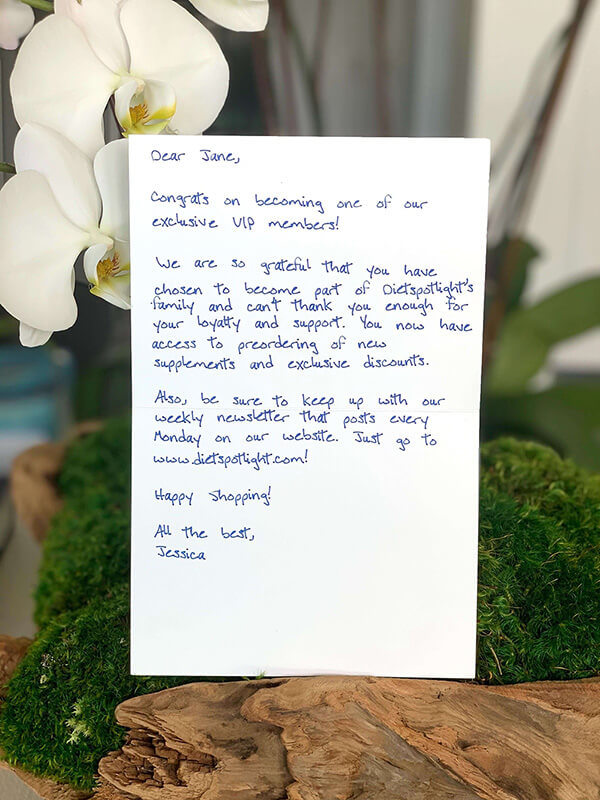 Dear Jane,
Congrats on becoming one of our
exclusive VIP members!
We are so grateful that you have
chosen to become part of Dietspotlight's
family and can't thank you enough for
your loyalty and support. You now have
access to preordering of new
supplements and exclusive discounts.
Also, be sure to keep up with our
weekly newsletter that posts every
Monday on our website. Just go to
www.dietspotlight.com!
Happy Shopping!
All the best,
Jessica